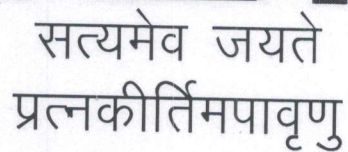 सत्यमेव जयते
प्रत्नकीर्तिमपावृणु